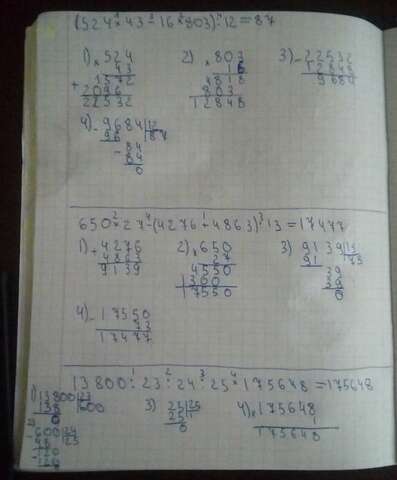 (524×43-16×803):12=87
1) × 524
43
1572
+ 2096
22532
2) × 803
16
4818
803
12848
3) - 22532
12848
9684
4) - 9684 | 12
96 | 87
- 84
84
0
650×27-(4276+4863):13=17477
1) + 4276
4863
9139
2) × 650
27
4550
1300
17550
3) 9139 | 13
91
39
39
0
4) - 17550
73
17477
13800:23:24:25×175648=175648
1) 13800 | 23
138 | 600
0
2) - 600 | 24
48 | 25
- 120
120
0
3) 25 | 25
25 | 1
0
4) × 175648
1
175648